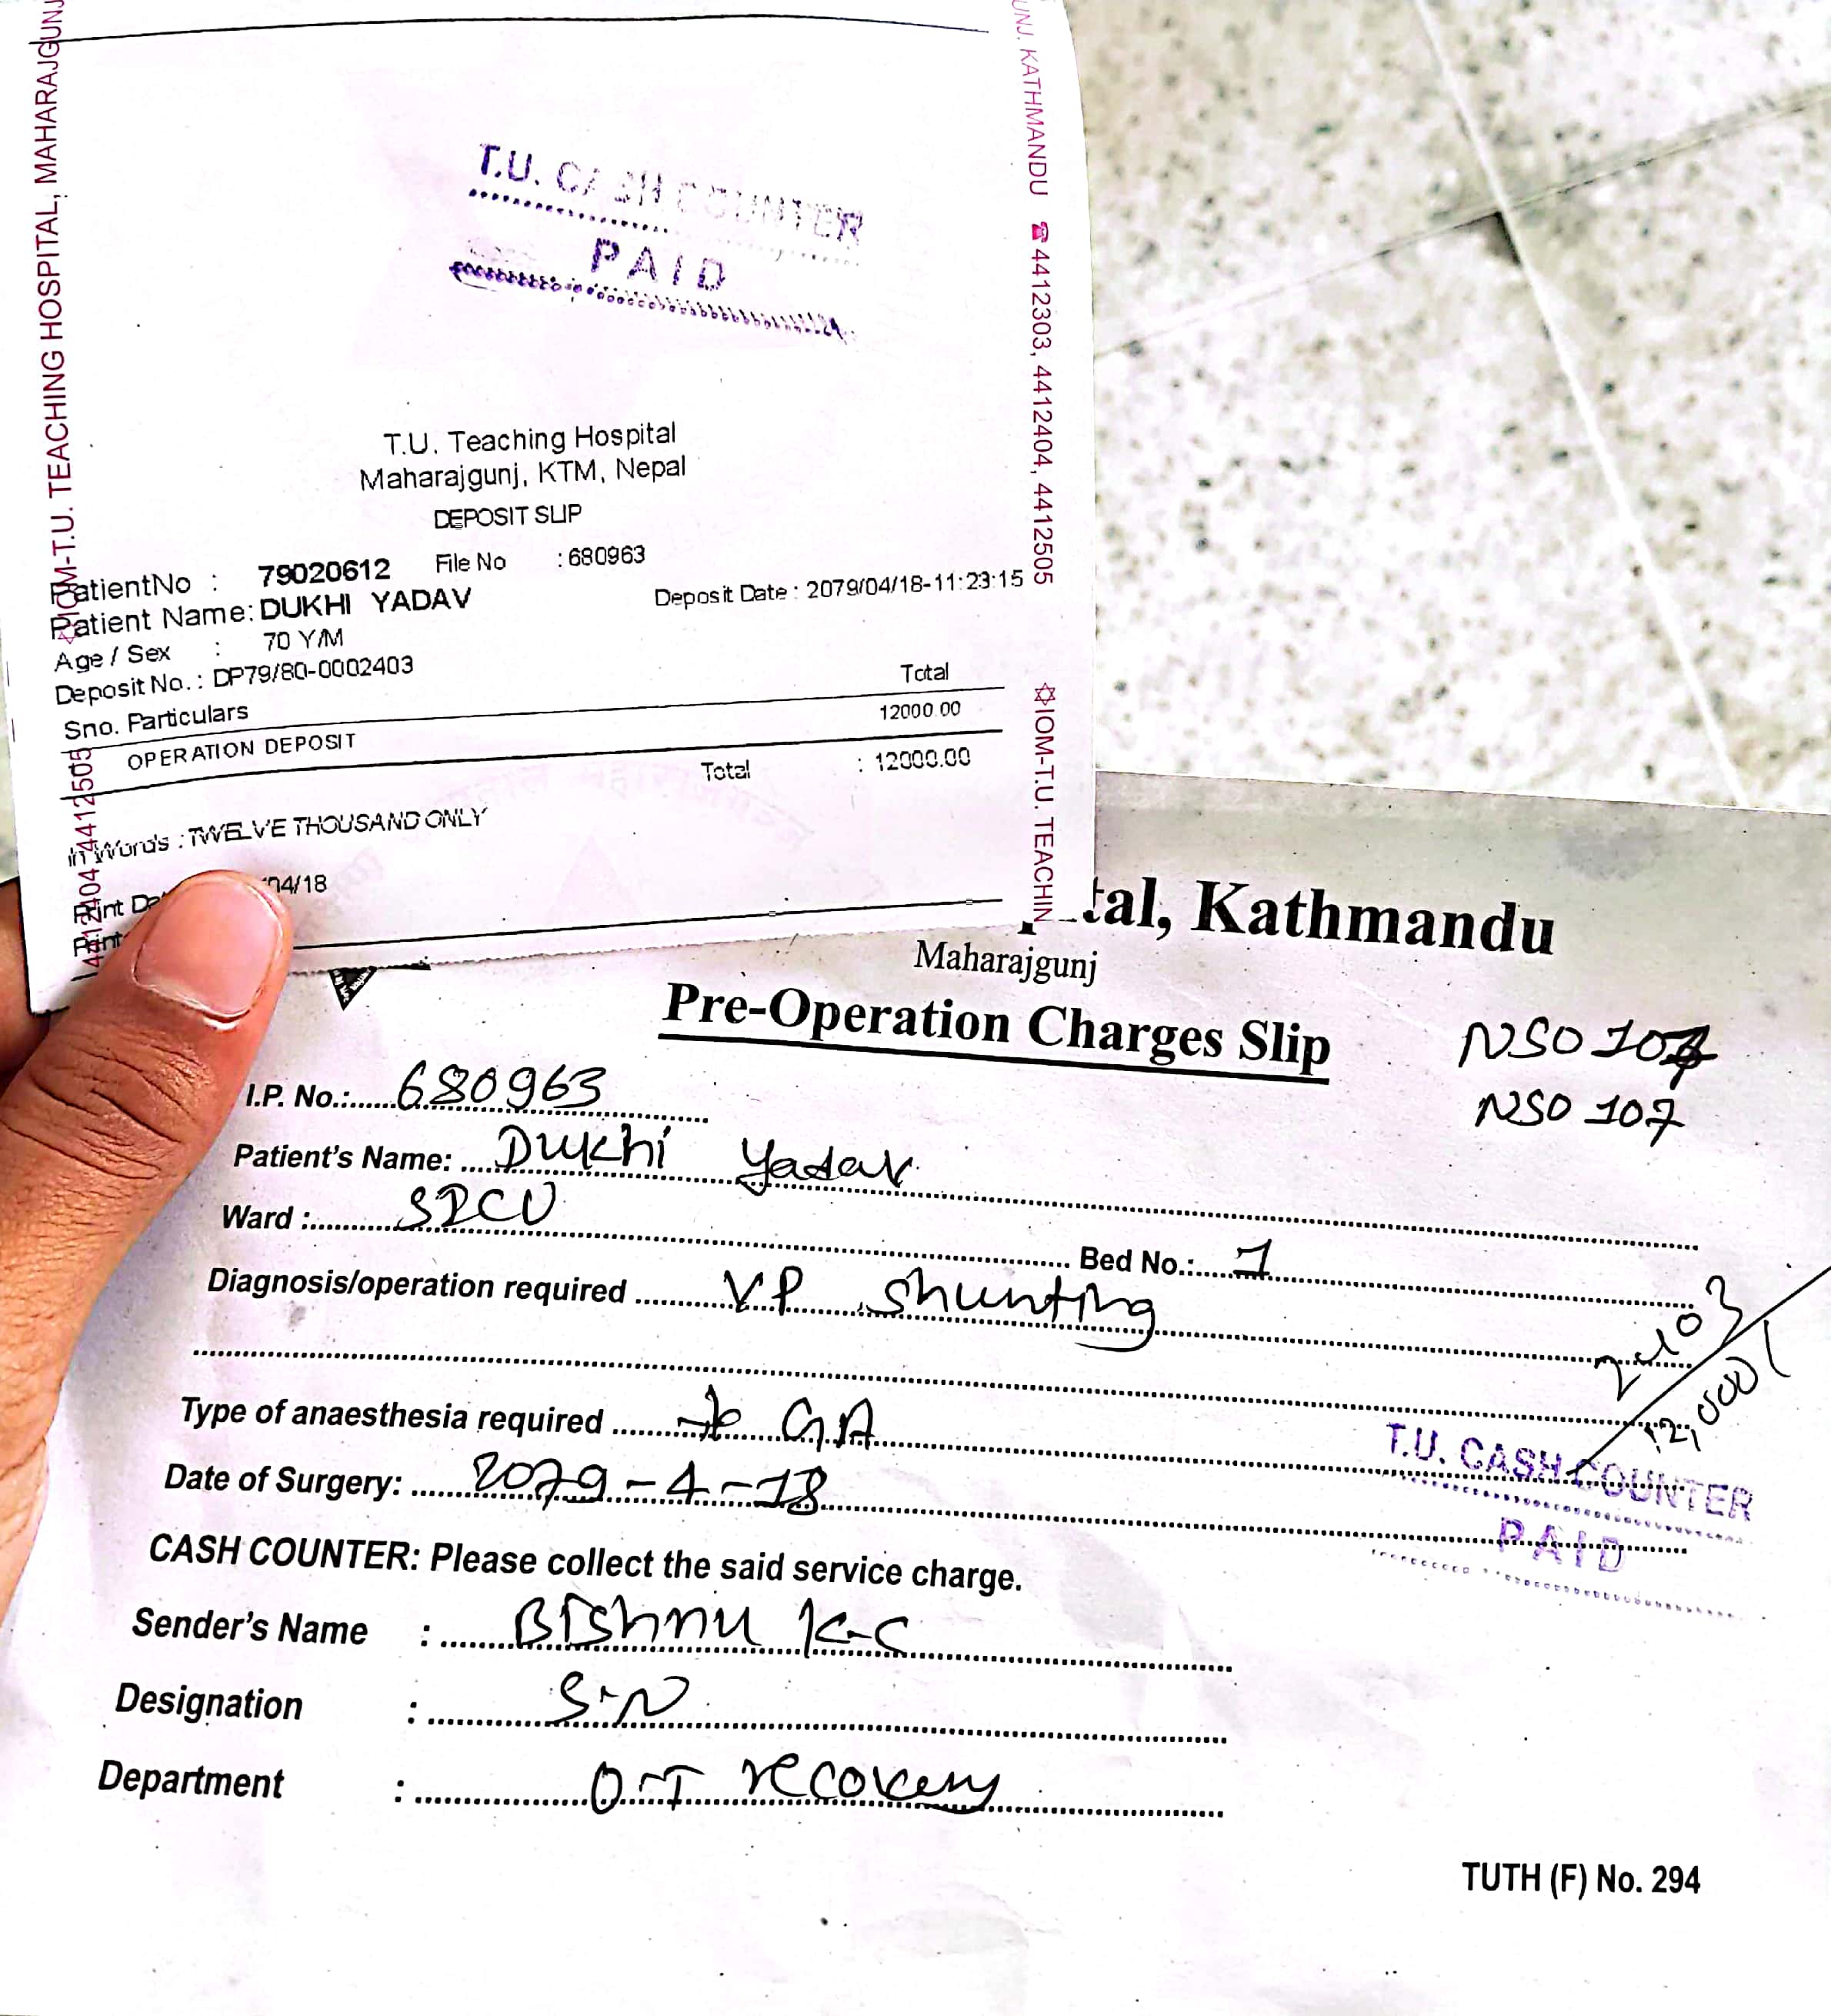 IOM-T.U. TEACHING HOSPITAL, MAHARAJGUNJ
UNJ. KATHMANDU ☎ 4412303, 4412404, 4412505
IOM-T.U. TEACHIN
4412404, 4412505
T.U. CASH COUNTER
PAID
T.U. Teaching Hospital
Maharajgunj, KTM, Nepal
DEPOSIT SLIP
PatientNo : 79020612 File No : 680963
Patient Name: DUKHI YADAV Deposit Date : 2079/04/18-11:23:15
Age / Sex : 70 Y/M
Deposit No. : DP79/80-0002403
Sno. Particulars Total
OPERATION DEPOSIT 12000.00
Total : 12000.00
In Words : TWELVE THOUSAND ONLY
Print Da 04/18
Print
tal, Kathmandu
Maharajgunj
Pre-Operation Charges Slip
NSO 107
NSO 107
I.P. No.: 680963
Patient's Name: Dukhi Yadav
Ward : SICU Bed No.: 1
Diagnosis/operation required VP shunting
2403
12,000/
Type of anaesthesia required GA
Date of Surgery: 2079-4-18
T.U. CASH COUNTER
PAID
CASH COUNTER: Please collect the said service charge.
Sender's Name : Bishnu K-C
Designation : S-N
Department : O-T recovery
TUTH (F) No. 294